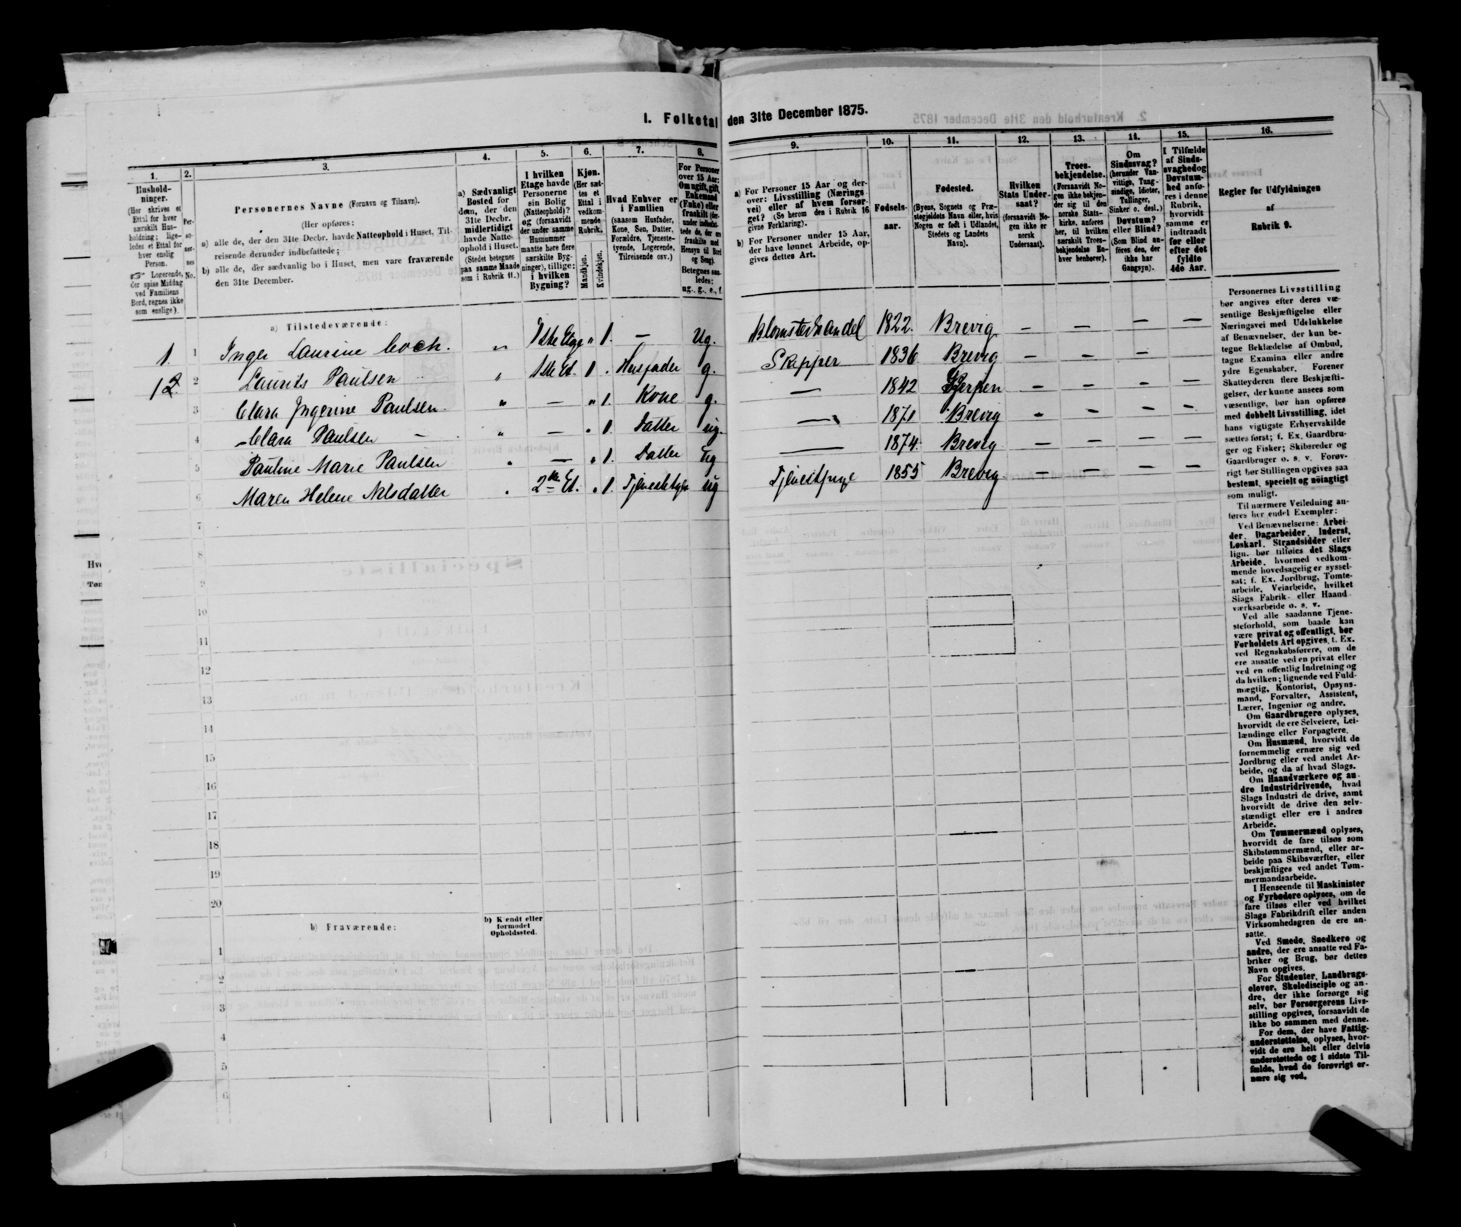 I. Folketal den 31te December 1875.
1. 2. 3. 4. 5. 6. 7. 8. 9. 10. 11. 12. 13. 14. 15. 16.
Hushold-
ninger.
(Her skrives et
Ettal for hver
særskilt Hus-
holdning; lige-
ledes et Ettal for
hver enslig
Person.
☞ Logerende,
der spise Middag
ved Familiens
Bord, regnes ikke
som enslige).
Per-
so-
ner-
nes
No.
Personernes Navne (Fornavn og Tilnavn).
(Her opføres:
a) alle de, der den 31te Decbr. havde Natteophold i Huset, Til-
reisende derunder indbefattede;
b) alle de, der sædvanlig bo i Huset, men vare fraværende
den 31te December.
a) Sædvanligt
Bosted for
dem, der den
31te Decbr.
midlertidigt
havde Natte-
ophold i Huset.
(Stedet betegnes
paa samme Maade
som i Rubrik 11.)
I hvilken
Etage havde
Personerne
sin Bolig
(Natteophold)?
og (forsaavidt
der under samme
Husnummer
maatte høre flere
særskilte Byg-
ninger), tillige:
i hvilken
Bygning?
Kjøn.
(Her sæt-
tes et
Ettal i
vedkom-
mende
Rubrik.)
Mandkjøn.
Kvindekjøn.
Hvad Enhver er
i Familien
(saasom Husfader,
Kone, Søn, Datter,
Forældre, Tjeneste-
tyende, Logerende,
Tilreisende osv.)
For Personer
over 15 Aar:
Om ugift, gift,
Enkemand
(Enke) eller
fraskilt
Betegnes saa-
ledes:
ug., g., e., f.
a) For Personer 15 Aar og der-
over: Livsstilling (Nærings-
vei) eller af hvem forsør-
get? (Se herom des i Rubrik 16
givne Forklaring).
b) For Personer under 15 Aar,
der have lønnet Arbeide, op-
gives dettes Art.
Fødsels-
aar.
Fødested.
(Byens, Sognets og Præ-
stegjeldets Navn eller, hvis
Nogen er født i Udlandet,
Stedets og Landets
Navn).
Hvilken
Stats Under-
saat?
(forsaavidt No-
gen ikke er
norsk
Undersaat).
Troes-
bekjendelse.
(Forsaavidt No-
gen ikke bekjen-
der sig til den
norske Stats-
kirke, anføres
her, til hvilken
særskilt Troes-
bekjendelse En-
hver henhører).
Om
Sindssvag?
(herunder Van-
vittige, Tung-
sindige, Idioter,
Tullinger,
Sinker o. desl.)
Døvstum?
eller Blind?
(Som Blind an-
føres den, der
ikke har
Gangsyn).
I Tilfælde
af Sinds-
svaghed og
Døvstum-
hed anfø-
res i denne
Rubrik,
hvorvidt
samme er
indtraadt
før eller
efter det
fyldte
4de Aar.
Regler for Udfyldningen
af
Rubrik 9.
a) Tilstedeværende:
1 1 Inger Laurine Coch. „ 1ste Etage „ 1. — Ug. Blomsterhandel 1822. Brevig — — —
2 2 Laurits Paulsen „ 1ste Et. 1 . Husfader g. Skipper 1836 Brevig — — —
3 Clara Ingerine Paulsen. „ — „ 1. Kone g. — 1842 Gjerpen — — — —
4 Clara Paulsen — „ — „ 1. Datter ug. — 1871 Brevig — — — —
5 Pauline Marie Paulsen „ — „ 1. Datter Ug — 1874. Brevig — — — —
6 Maren Helene Nilsdatter „ 2den Et. „ 1. Tjenestetyende ug Tjenestepige 1855 Brevig — — — —
7
8
9
10
11
12
13
14
15
16
17
18
19
20
b) Fraværende:
b) Kjendt eller
formodet
Opholdssted.
1
2
3
4
5
6
Personernes Livsstilling
bør angives efter deres væ-
sentlige Beskjæftigelse eller
Næringsvei med Udelukkelse
af Benævnelser, der kun be-
tegne Beklædelse af Ombud,
tagne Examina eller andre
ydre Egenskaber. Forener
Skatteyderen flere Beskjæfti-
gelser, der kunne ansees som
væsentlige, bør han opføres
med dobbelt Livsstilling, idet
hans vigtigste Erhvervskilde
sættes først; f. Ex. Gaardbru-
ger og Fisker; Skibsreder og
Gaardbruger o. s. v. Forøv-
rigt bør Stillingen opgives saa
bestemt, specielt og nøiagtigt
som muligt.
Til nærmere Veiledning an-
føres her endel Exempler:
Ved Benævnelserne: Arbei-
der, Dagarbeider, Inderst,
Løskarl, Strandsidder eller
lign. bør tilføies det Slags
Arbeide, hvormed vedkom-
mende hovedsagelig er syssel-
sat; f. Ex. Jordbrug, Tomte-
arbeide, Veiarbeide, hvilket
Slags Fabrik- eller Haand-
værksarbeide o. s. v.
Ved alle saadanne Tjene-
steforhold, som baade kan
være privat og offentligt, bør
Forholdets Art opgives, t. Ex.
ved Regnskabsførere, om de
ere ansatte ved en privat eller
ved en offentlig Indretning og
da hvilken; lignende ved Fuld-
mægtig, Kontorist, Opsyns-
mand, Forvalter, Assistent,
Lærer, Ingeniør og andre.
Om Gaardbrugere oplyses,
hvorvidt de ere Selveiere, Lei-
lændinge eller Forpagtere.
Om Husmænd, hvorvidt de
fornemmelig ernære sig ved
Jordbrug eller ved andet Ar-
beide, og da af hvad Slags.
Om Haandværkere og an-
dre Industridrivende, hvad
Slags Industri de drive, samt
hvorvidt de drive den selv-
stændigt eller ere i andres
Arbeide.
Om Tømmermænd oplyses,
hvorvidt de fare tilsøs som
Skibstømmermænd, eller ar-
beide paa Skibsværfter, eller
beskjæftiges ved andet Tøm-
mermandsarbeide.
I Henseende til Maskinister
og Fyrbødere oplyses, om de
fare tilsøs eller ved hvilket
Slags Fabrikdrift eller anden
Virksomhedsgren de ere an-
satte.
Ved Smede, Snedkere og
andre, der ere ansatte ved Fa-
briker og Brug, bør dettes
Navn opgives.
For Studenter, Landbrugs-
elever, Skoledisciple og an-
dre, der ikke forsørge sig
selv, bør Forsørgerens Livs-
stilling opgives, forsaavidt de
ikke bo sammen med denne.
For dem, der have Fattig-
understøttelse, oplyses, hvor-
vidt de ere helt eller delvis
understøttede og i sidste Til-
fælde, hvad de forøvrigt er-
nære sig ved.